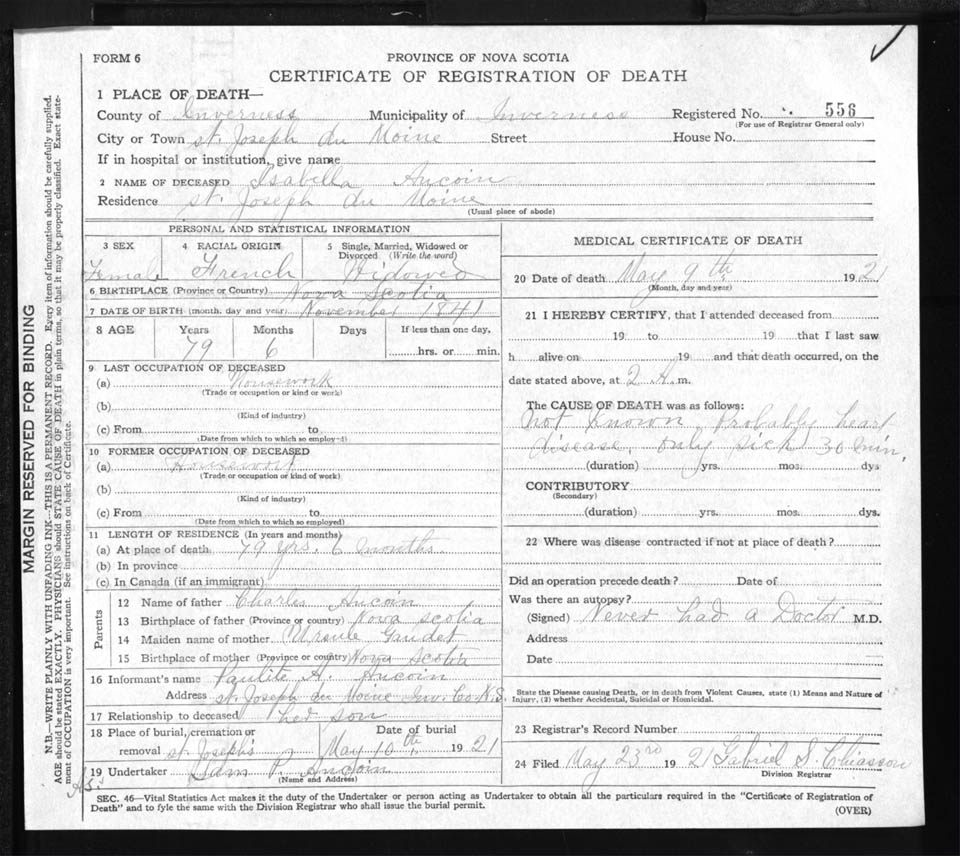 FORM 6
PROVINCE OF NOVA SCOTIA
CERTIFICATE OF REGISTRATION OF DEATH
1 PLACE OF DEATH—
County of Inverness Municipality of Inverness Registered No. 556
(For use of Registrar General only)
City or Town St. Joseph du Moine Street House No.
If in hospital or institution, give name
2 NAME OF DECEASED Isabella Aucoin
Residence St. Joseph du Moine
(Usual place of abode)
PERSONAL AND STATISTICAL INFORMATION
3 SEX 4 RACIAL ORIGIN 5 Single, Married, Widowed or Divorced (Write the word)
Female French Widowed
6 BIRTHPLACE (Province or Country) Nova Scotia
7 DATE OF BIRTH (month, day and year) November 1841
8 AGE Years Months Days If less than one day,
79 6 hrs. or min.
9 LAST OCCUPATION OF DECEASED
(a) Housework
(Trade or occupation or kind or work)
(b)
(Kind of industry)
(c) From to
(Date from which to which so employed)
10 FORMER OCCUPATION OF DECEASED
(a) Housework
(Trade or occupation or kind of work)
(b)
(Kind of industry)
(c) From to
(Date from which to which so employed)
11 LENGTH OF RESIDENCE (In years and months)
(a) At place of death 79 yrs. 6 months
(b) In province
(c) In Canada (if an immigrant)
Parents
12 Name of father Charles Aucoin
13 Birthplace of father (Province or country) Nova Scotia
14 Maiden name of mother Ursule Gaudet
15 Birthplace of mother (Province or country) Nova Scotia
16 Informant's name Paulite A. Aucoin
Address St. Joseph du Moine Inv. Co. N.S.
17 Relationship to deceased her son
18 Place of burial, cremation or removal St. Joseph's Date of burial May 10th 1921
19 Undertaker Sam P. Aucoin
(Name and Address)
MEDICAL CERTIFICATE OF DEATH
20 Date of death May 9th 1921
(Month, day and year)
21 I HEREBY CERTIFY, that I attended deceased from
19 to 19 that I last saw
h alive on 19 and that death occurred, on the
date stated above, at 2 A.m.
The CAUSE OF DEATH was as follows:
Not known, Probably heart
disease, only sick 30 min.
(duration) yrs. mos. dys
CONTRIBUTORY
(Secondary)
(duration) yrs. mos. dys.
22 Where was disease contracted if not at place of death?
Did an operation precede death? Date of
Was there an autopsy?
(Signed) Never had a Doctor M.D.
Address
Date
State the Disease causing Death, or in death from Violent Causes, state (1) Means and Nature of
Injury, (2) whether Accidental, Suicidal or Homicidal.
23 Registrar's Record Number
24 Filed May 23rd 1921 Gabriel S. Chiasson
Division Registrar
SEC. 46—Vital Statistics Act makes it the duty of the Undertaker or person acting as Undertaker to obtain all the particulars required in the "Certificate of Registration of
Death" and to fyle the same with the Division Registrar who shall issue the burial permit.
(OVER)
MARGIN RESERVED FOR BINDING
N.B.—WRITE PLAINLY WITH UNFADING INK—THIS IS A PERMANENT RECORD. Every item of information should be carefully supplied.
AGE should be stated EXACTLY. PHYSICIANS should STATE CAUSE OF DEATH in plain terms, so that it may be properly classified. Exact state-
ment of OCCUPATION is very important. See instructions on back of Certificate.